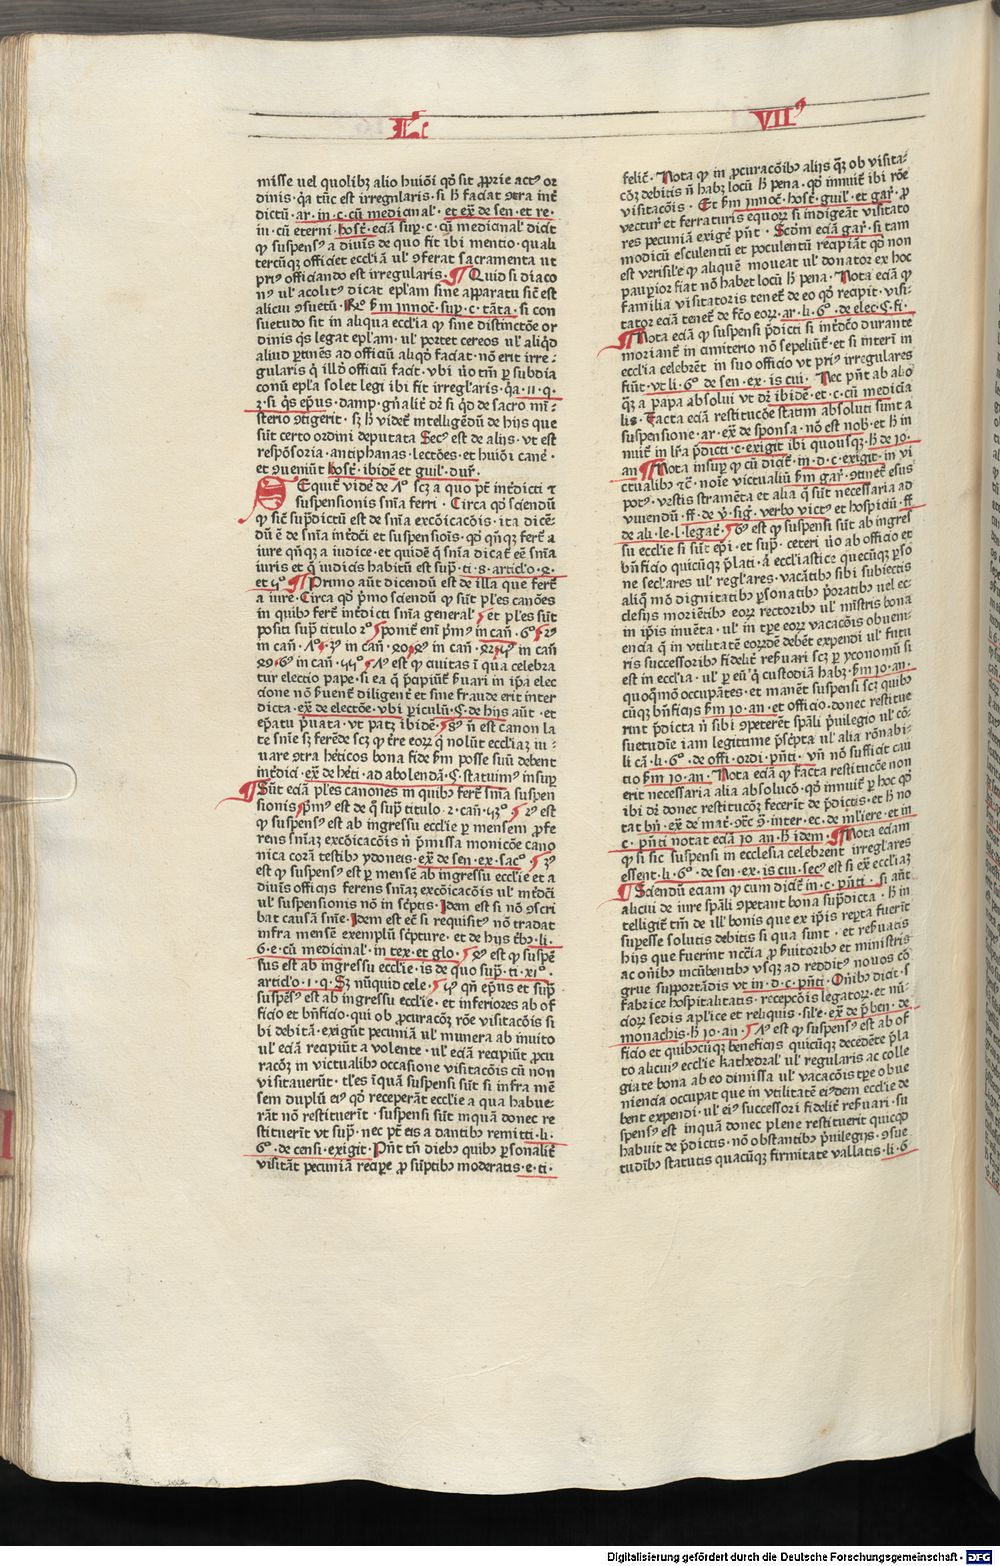 L
VII⁹
misse uel quolibꝫ alio huiōi qđ sit ꝓprie actꝰ or
dinis · q̇a tūc est irregularis · si h̄ faciat ꝯtra int̄
dictū · ar · in · c · cū medicinal̓ · et ex̄ de sen · et re ·
in · cū eterni · host̄ · eciā suꝑ · c · cū medicinal̓ dicit
ꝙ suspensꝰ a diuīs de quo fit ibi mentio · quali
tercūqꝫ officiet eccl̓iā ul̓ ꝯferat sacramenta ut
priꝰ officiando est irregularis · ¶ Quid si diaco
nꝰ ul̓ acolitꝰ dicat epl̓am sine apparatu sic̄ est
alicui ꝯsuetū · Rō ẜm Innoc̄ · suꝑ · c · tāta · si con
suetudo sit in aliqua eccl̓ia ꝙ sine distinctōe or
dinis q̇s legat epl̓am · ul̓ portet cereos ul̓ aliq̇d
aliud ꝑtinēs ad officiū aliqđ faciat · nō erit irre
gularis q̇ illđ officiū facit · vbi u̓o tm̄ ꝑ subdia
conū epl̓a solet legi ibi fit irregl̓aris · q̇a · 11 · q ·
2 · si q̇s ep̄us · damp · gn̄alit̄ dr̄ si q̇d de sacro mi
sterio ꝯtigerit · sꝫ h̄ videt̄ intelligēdū de hijs que
sūt certo ordini deputata Secꝰ est de alijs · vt est
respōsoria · antiphanas · lectōes · et huiōi cane ·
et ꝯueniūt host̄ · ibidē et guil̓ · dur̄ ·
SEquit̄ vidē de 7° scꝫ a quo pt̄ int̓dicti ⁊
suspensionis sn̄ia ferri · Circa qđ sciendū
ꝙ sic̄ sup̓dictū est de sn̄ia excōicacōis · ita dicē
dū ē de sn̄ia int̓dc̄i et suspensiōis · qđ qn̄qꝫ fert̄ a
iure qn̄qꝫ a iudice · et quidē q̄ sn̄ia dicat̄ eē sn̄ia
iuris et q̄ iudicis habitū est sup̓ · ti · 8 · articl̓o · 2 ·
et 4° · ¶ Primo aūt dicendū est de illa que fert̄
a iure · Circa qđ p̓mo sciendū ꝙ sūt pl̓es canōes
in quibꝰ fert̄ int̓dicti sn̄ia general̓ et pl̓es sūt
positi sup̓ titulo 2° ponit̄ eni p̓mꝰ in can̄ · 6° · 2ꝰ
in can̄ · 7° · 3ꝰ in can̄ · 20 · 4ꝰ in can̄ · 24 · 5ꝰ in can̄
29 · 6ꝰ in can̄ · 44° · 7ꝰ est ꝙ ciuitas ī q̇a celebra
tur electio pape · si ea q̄ p̓cipiūt̄ ẜuari in ip̄a elec
cione nō ẜuent̄ diligent̄ et sine fraude erit inter
dicta · ex̄ de electōe · vbi periculū · §. de hijs aūt · et
ep̄atu p̓uata · vt patꝫ ibidē · 8ꝰ n̄ est canon la
te sn̄ie sꝫ ferēde scꝫ ꝙ t̓re eorꝫ q̄ nolūt eccl̓iaꝫ iu
uare ꝯtra hēticos bona fide ẜm posse suū debent
int̓dici · ex̄ de hēti · ad abolendā · §. statuimꝰ insuꝑ
¶ Sūt eciā pl̓es canones in quibꝰ fert̄ sn̄ia suspen
sionis p̓mꝰ est de q̄ sup̓ titulo · 2 · can̄ · 43° · 2ꝰ est
ꝙ suspensꝰ est ab ingressu eccl̓ie ꝑ mensem ꝓfe
rens sn̄iaꝫ excōicacōis n̄ p̓missa monicōe cano
nica corā testibꝰ ydoneis · ex̄ de sen · ex · sacꝰ · 3ꝰ
est ꝙ suspensꝰ est ꝑ mensē ab ingressu eccl̓ie et a
diuīs officijs ferens sn̄iaꝫ excōicacōis ul̓ int̓dc̄i
ul̓ suspensionis nō in sc̓ptis · Idem est si nō ꝯscri
bat causā sn̄ie · Idem est ec̄ si requisitꝰ nō tradat
infra mensē exemplū sc̓pture · et de hijs t̓bꝰ · li ·
6 · e · cū medicinal̓ · in tex · et glo · 4ꝰ est ꝙ suspē
sus est ab ingressu eccl̓ie · is de quo sup̓ · ti · xi° ·
articl̓o · 1 · q · Sꝫ nūquid cele · 5ꝰ qn̄ ep̄us et sup̓
suspēsꝰ est ab ingressu eccl̓ie · et inferiores ab of
ficio et bn̄ficio · qui ob ꝓcuracōꝫ rōe visitacōis si
bi debitā · exigūt pecuniā ul̓ munera ab inuito
ul̓ eciā recipiūt a volente · ul̓ eciā recipiūt ꝓcu
racōꝫ in victualibꝰ occasione visitacōis cū non
visitauerūt · tl̓es īquā suspensi sūt si infra mē
sem duplū eiꝰ qđ receperāt eccl̓ie a qua habue
rāt nō restituerīt · suspensi sūt inquā donec re
stituerīt vt sup̓ · nec pt̄ eis a dantibꝰ remitti · li ·
6° · de censi · exigit · Pn̄t tn̄ diebꝰ quibꝰ ꝑsonalit̄
visitāt pecuniā recipe ꝓ sūptibꝰ moderatis · e · ti ·
felic̄ · Nota ꝙ in ꝓcuracōibꝰ alijs q̄ꝫ ob visita
cōꝫ debitis n̄ habꝫ locū h̄ pena · qđ innuit̄ ibi rōe
visitacōis · Et ẜm Innoc̄ · host̄ · guil̓ · et gar̄ · ꝓ
vectur̄ et ferraturis equorꝫ si indigeāt visitato
res pecuniā exiḡe pn̄t · Scđm eciā gar̄ · si tam
modicū esculentū et poculentū recipiāt qđ non
est verisil̓e ꝙ aliquē moueat ul̓ donator ex hoc
paupior fiat nō habet locū h̄ pena · Nota eciā ꝙ
familia visitatoris tenet̄ de eo qđ recipit · visi
tator eciā tenet̄ de fc̄o eorꝫ · ar · li · 6° · de elec · §. fi ·
¶ Nota eciā ꝙ suspensi p̓dicti si int̓dc̄o durante
moriant̄ in cimiterio nō sepeliūt̄ · et si interī in
eccl̓ia celebrēt in suo officio vt priꝰ irregulares
fiūt · vt li · 6° · de sen · ex · is cui · Nec pn̄t ab alio
q̄ꝫ a papa absolui vt dr̄ ibidē · et · c · cū medicia
lis · Tacta eciā restitucōe statim absoluti sunt a
suspensione · ar · ex̄ de sponsa · nō est nob̄ · et h̄ in
nuit̄ in lr̄a p̓dicti · c · exigit ibi quousqꝫ · h̄ de Io ·
an · ¶ Nota insuꝑ ꝙ cū dicit̄ · in · d · c · exigit · in vi
ctualibꝰ ⁊c̄ · noīe victualiū ẜm gar̄ · ꝯtinet̄ esus
potꝰ · vestis stramēta et alia q̄ sūt necessaria ad
viuendū · ff · de v̄ · siḡ · verbo victꝰ et hospiciū · ff
de ali · le · l · legat̄ · 6ꝰ est ꝙ suspensi sūt ab ingres
su eccl̓ie si sūt ep̄i · et sup̓ · ceteri u̓o ab officio et
bn̄ficio quicūqꝫ p̓lati · a eccl̓iastice quecūqꝫ ꝑso
ne secl̓ares ul̓ regl̓ares · vacātibꝰ sibi subiectis
aliq̄ mō dignitatibꝰ ꝑsonatibꝰ p̓oratibꝰ uel ec
clesijs moriētibꝰ eorꝫ rectoribꝰ ul̓ mīstris bona
in ip̄is inuēta · ul̓ in tꝑe eorꝫ vacacōis obueni
encia q̄ in vtilitatē eorꝫdē debēt expendi ul̓ futu
ris successoribꝰ fidelit̄ reẜuari scꝫ ꝑ yconomū si
est in eccl̓ia · ul̓ ꝑ eū q̇ custodiā habꝫ · ẜm Io · an ·
quoqꝫmō occupātes · et manēt suspensi scꝫ quibꝰ
cūqꝫ bn̄ficijs ẜm Io · an · et officio · donec restitue
rint p̓dicta n̄ sibi ꝯpeterēt spāli p̓uilegio ul̓ cō
suetudīe iam legittime p̓sc̓pta ul̓ alia rōnabi
li cā · li · 6° · de offi · ordi · p̄nti · vn̄ nō sufficit cau
tio ẜm Io · an · Nota eciā ꝙ facta restitucōe non
erit necessaria alia absolucō · qđ innuit̄ ꝑ hoc qđ
ibi dr̄ donec restitucōꝫ fecerīt de p̓dictis · et h̄ no
tat bn̄ · ex̄ de mat̄ · ꝯtc̄ ꝯ · inter · ec · de ml̓iere · et in
c · p̄nti notat eciā Io · an · h̄ idem · ¶ Nota eciam
ꝙ si sic suspensi in ecclesia celebrent irregl̓ares
essent · li · 6° · de sen · ex · is cui · secꝰ est si ex̄ eccl̓iaꝫ
¶ Sciendū eciam ꝙ cum dicit̄ in · c · p̄nti · si aūt
alicui de iure spāli ꝯpetant bona sup̓dicta · h̄ in
telligit̄ tm̄ de ill̓ bonis que ex ip̄is rep̄ta fuerīt
supesse solutis debitis si qua sint · et reẜuatis
hijs que fuerint nccīa ꝓ ẜuitoribꝰ et ministris
ac on̄ibꝰ incūbentibꝰ vsqꝫ ad redditꝰ nouos cō
grue supportādis vt in · d · c · p̄nti · Oībꝰ dicit · s
fabrice hospitalitatis · recepcōis legatorꝫ · et nū
ciorꝫ sedis ap̄lice et reliquis · sil̓e · ex̄ de p̓ben · de
monachis · h̄ Io · an · 7ꝰ est ꝙ suspensꝰ est ab of
ficio et quibꝰcūqꝫ beneficijs quicūqꝫ decedēte p̓la
to alicuiꝰ eccl̓ie kathedral̓ ul̓ regularis ac colle
giate bona ab eo dimissa ul̓ vacacōis tꝑe obue
niencia occupat que in vtilitatē eiꝰdem eccl̓ie de
bent expendi · ul̓ eiꝰ successori fidelit̄ reẜuari · su
spensꝰ est inquā donec plene restituerit quicqđ
habuit de p̓dictis · nō obstantibꝰ p̓uilegijs · ꝯsue
tudibꝰ statutis quacūqꝫ firmitate vallatis · li · 6
Digitalisierung gefördert durch die Deutsche Forschungsgemeinschaft - DFG